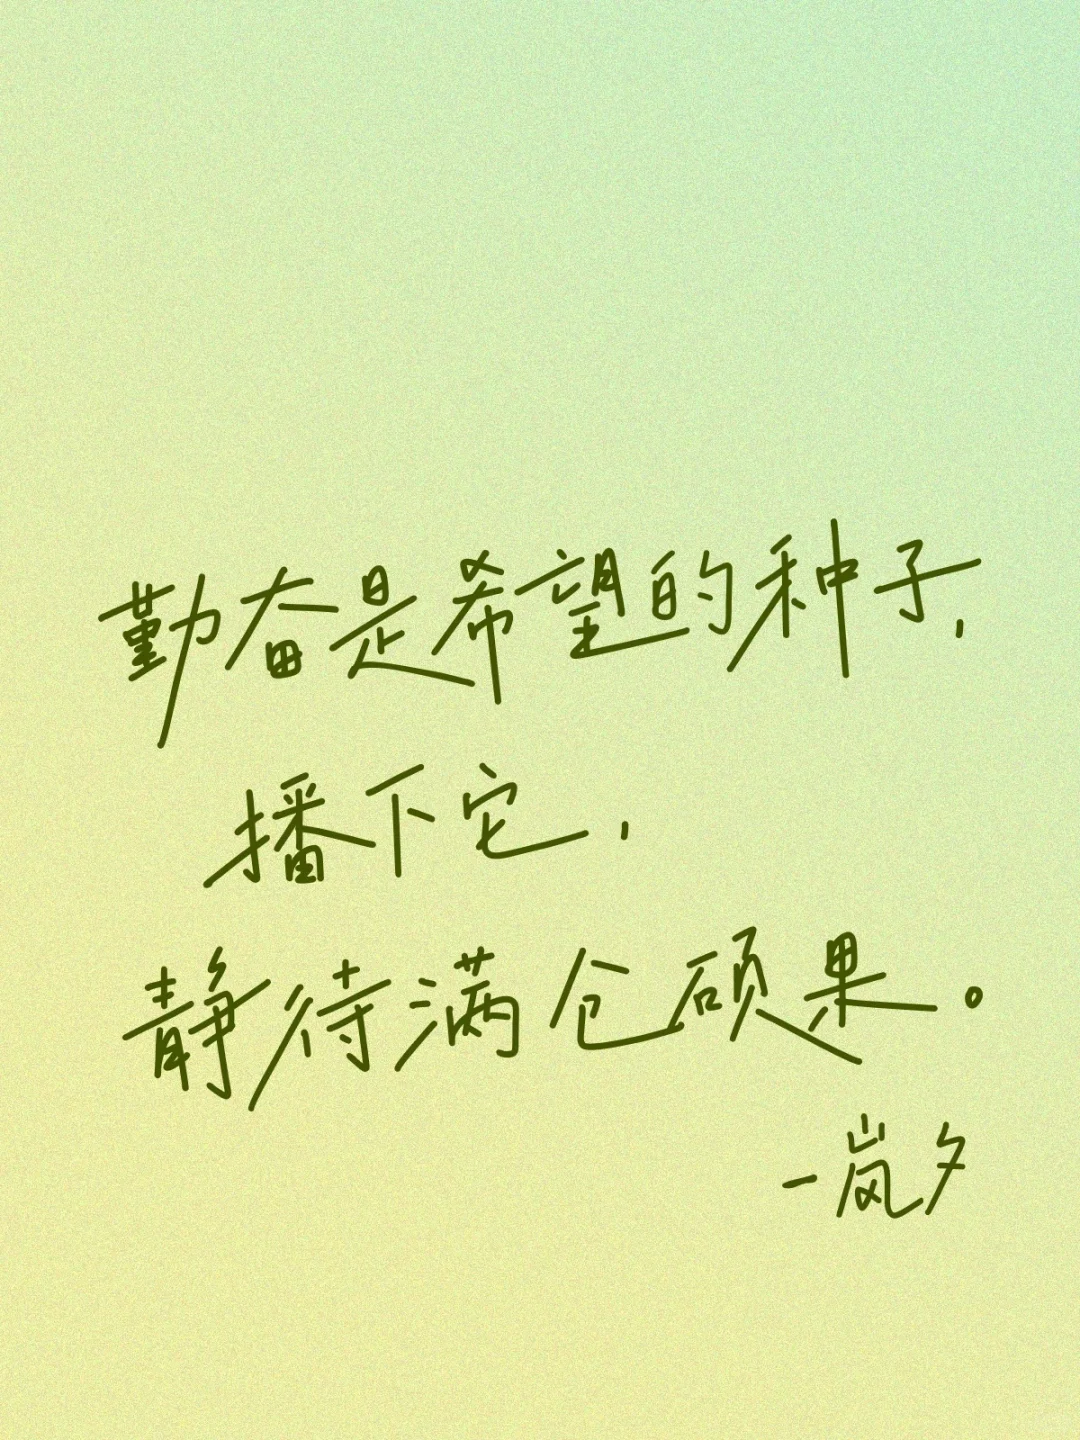 勤奋是希望的种子，
播下它，
静待满仓硕果。
一岚夕